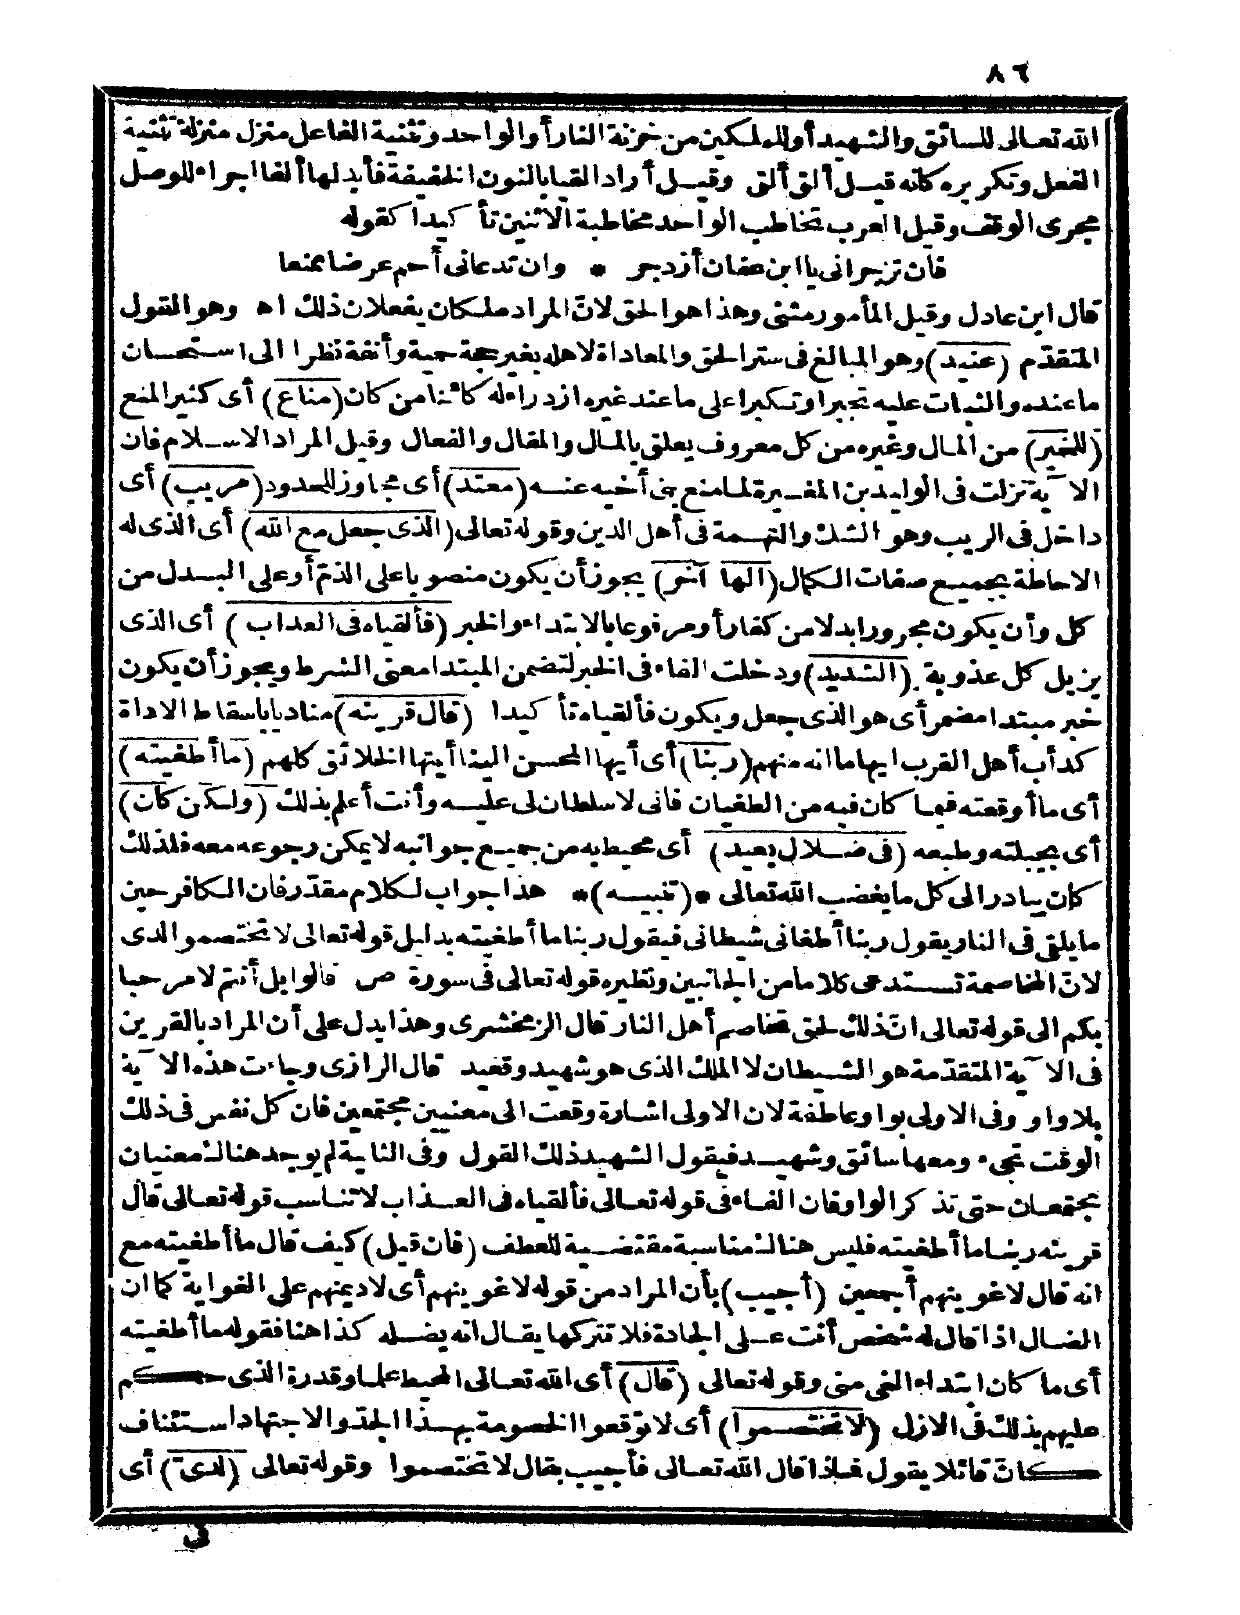 ٨٦
الله تعالى للسائق والشهيد أو للملكين من خزنة النار أو الواحد وتثنية الفاعل منزل منزلة تثنية
الفعل وتكريره كأنه قيل ألق ألق وقيل أراد القيا بالنون الخفيفة فأبدلها ألفا اجراء للوصل
مجرى الوقف وقيل العرب تخاطب الواحد مخاطبة الاثنين تأكيدا كقوله
فان تزجراني يا ابن عفان أزدجر * وان تدعاني أحم عرضا ممنعا
قال ابن عادل وقيل المأمور مثنى وهذا هو الحق لانّ المراد ملكان يفعلان ذلك اه وهو القول
المتقدّم (عنيد) وهو المبالغ في ستر الحق والمعاداة لاهله بغير حجة حمية وأنفة نظرا الى استحسان
ما عنده والثبات عليه تجبرا وتكبرا على ما عند غيره ازدراء له كائنا من كان (مناع) أى كثير المنع
(للخير) من المال وغيره من كل معروف يعلق بالمال والمقال والفعال وقيل المراد الاسلام فان
الآية نزلت في الوليد بن المغيرة لما منع بنى أخيه عنه (معتد) أى مجاوز للحدود (مريب) أى
داخل في الريب وهو الشك والتهمة في أهل الدين وقوله تعالى (الذى جعل مع الله) أى الذى له
الاحاطة بجميع صفات الكمال (الها آخر) يجوز أن يكون منصوبا على الذمّ أو على البدل من
كل وأن يكون مجرورا بدلا من كفار أو مرفوعا بالابتداء والخبر (فألقياه في العذاب) أى الذى
يزيل كل عذوبة (الشديد) ودخلت الفاء في الخبر لتضمن المبتدا معنى الشرط ويجوز أن يكون
خبر مبتدا مضمر أى هو الذى جعل ويكون فألقياه تأكيدا (قال قرينه) مناديا باسقاط الاداة
كدأب أهل القرب ايهاما انه منهم (ربنا) أى أيها المحسن الينا أيتها الخلائق كلهم (ما أطغيته)
أى ما أوقعته فيما كان فيه من الطغيان فانى لا سلطان لى عليه وأنت أعلم بذلك (ولكن كان)
أى بجبلته وطبعه (في ضلال بعيد) أى محيط به من جميع جوانبه لا يمكن رجوعه معه فلذلك
كان يبادر الى كل ما يغضب الله تعالى * (تنبيه) * هذا جواب لكلام مقدّر فان الكافر حين
ما يلقى في النار يقول ربنا أطغانى شيطانى فيقول ربنا ما أطغيته بدليل قوله تعالى لا تختصموا لدى
لانّ المخاصمة تستدعى كلاما من الجانبين ونظيره قوله تعالى في سورة ص قالوا بل أنتم لا مرحبا
بكم الى قوله تعالى انّ ذلك لحق تخاصم أهل النار قال الزمخشرى وهذا يدل على أن المراد بالقرين
في الآية المتقدّمة هو الشيطان لا الملك الذى هو شهيد وقعيد قال الرازى وجاءت هذه الآية
بلا واو وفى الاولى بواو عاطفة لان الاولى اشارة وقعت الى معنيين مجتمعين فان كل نفس في ذلك
الوقت تجىء ومعها سائق وشهيد فيقول الشهيد ذلك القول وفى الثانية لم يوجد هناك معنيان
يجتمعان حتى تذكر الواو فان الفاء في قوله تعالى فألقياه في العذاب لا تناسب قوله تعالى قال
قرينه ربنا ما أطغيته فليس هناك مناسبة مقتضية للعطف (فان قيل) كيف قال ما أطغيته مع
انه قال لاغوينهم أجمعين (أجيب) بأن المراد من قوله لاغوينهم أى لاديمنهم على الغواية كما ان
الضال اذا قال له شخص أنت على الجادة فلا تتركها يقال انه يضله كذا هنا فقوله ما أطغيته
أى ما كان ابتداء الغى منى وقوله تعالى (قال) أى الله تعالى المحيط علما وقدرة الذى حكم
عليهم بذلك في الازل (لا تختصموا) أى لا توقعوا الخصومة بهذا الجدّ والاجتهاد استئناف
كانّ قائلا يقول فماذا قال الله تعالى فأجيب بقال لا تختصموا وقوله تعالى (لدىّ) أى
في